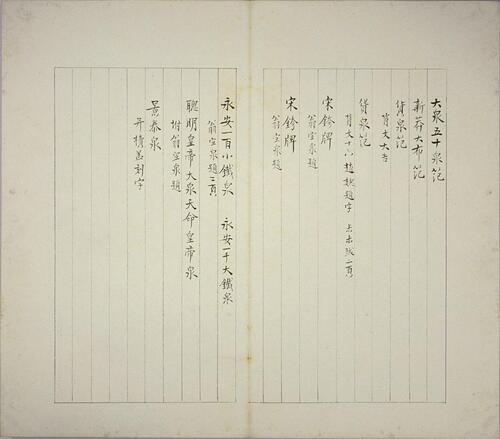 大泉五十泉范
新莽大布范
貨泉范
背文大吉
貨泉范
背文十八 趙魏題字 二頁
宋鈐牌
翁宜泉題
宋鈐牌
翁宜泉題
永安一百小鐵泉 永安一千大鐵泉
翁宜泉題二頁
聰明皇帝大泉天命皇帝泉
坿翁宜泉題
景泰泉
刻字